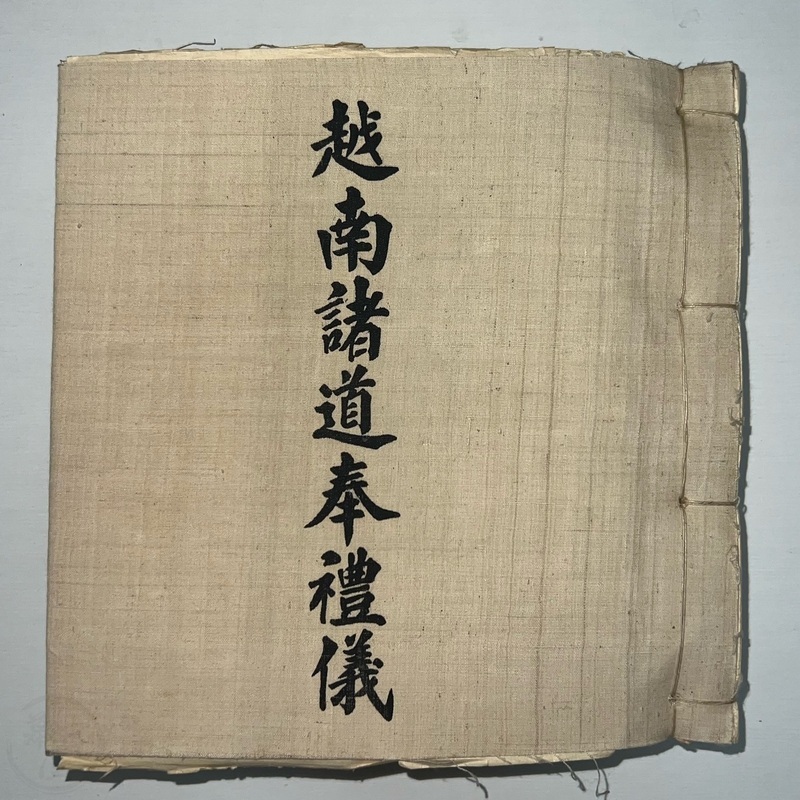 越南諸道奉禮儀